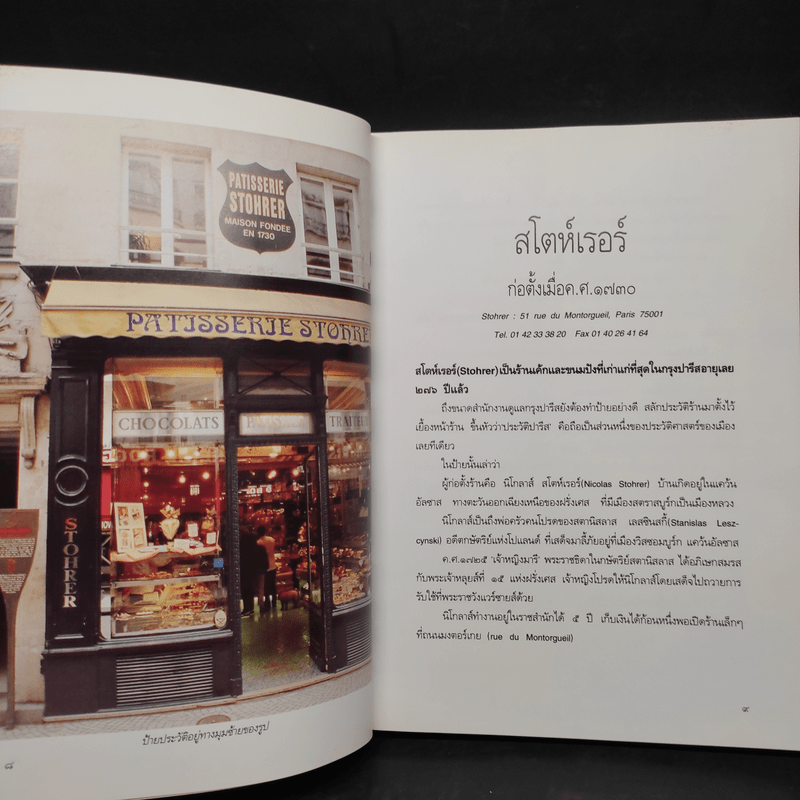 PATISSERIE
STOHRER
MAISON FONDÉE
EN 1730
PATISSERIE STOHRE
CHOCOLATS
TRAITEU
STOHRER
ป้ายประวัติอยู่ทางมุมซ้ายของรูป
๘
สโตห์เรอร์
ก่อตั้งเมื่อค.ศ.๑๗๓๐
Stohrer : 51 rue du Montorgueil, Paris 75001
Tel. 01 42 33 38 20 Fax 01 40 26 41 64
สโตห์เรอร์(Stohrer)เป็นร้านเค้กและขนมปังที่เก่าแก่ที่สุดในกรุงปารีสอายุเลย
๒๗๖ ปีแล้ว
ถึงขนาดสำนักงานดูแลกรุงปารีสยังต้องทำป้ายอย่างดี สลักประวัติร้านมาตั้งไว้
เยื้องหน้าร้าน ขึ้นหัวว่าประวัติปารีส คือถือเป็นส่วนหนึ่งของประวัติศาสตร์ของเมือง
เลยทีเดียว
ในป้ายนั้นเล่าว่า
ผู้ก่อตั้งร้านคือ นิโกลาส์ สโตห์เรอร์(Nicolas Stohrer) บ้านเกิดอยู่ในแคว้น
อัลซาส ทางตะวันออกเฉียงเหนือของฝรั่งเศส ที่มีเมืองสตราสบูร์กเป็นเมืองหลวง
นิโกลาส์เป็นถึงพ่อครัวคนโปรดของสตานิสลาส เลสซินสกี้(Stanislas Lesz-
cynski) อดีตกษัตริย์แห่งโปแลนด์ ที่เสด็จมาลี้ภัยอยู่ที่เมืองวิสซอมบูร์ก แคว้นอัลซาส
ค.ศ.๑๗๒๕ เจ้าหญิงมารี พระราชธิดาในกษัตริย์สตานิสลาส ได้อภิเษกสมรส
กับพระเจ้าหลุยส์ที่ ๑๕ แห่งฝรั่งเศส เจ้าหญิงโปรดให้นิโกลาส์โดยเสด็จไปถวายการ
รับใช้ที่พระราชวังแวร์ซายส์ด้วย
นิโกลาส์ทำงานอยู่ในราชสำนักได้ ๕ ปี เก็บเงินได้ก้อนหนึ่งพอเปิดร้านเล็กๆ
ที่ถนนมงตอร์เกย (rue du Montorgueil)
๙